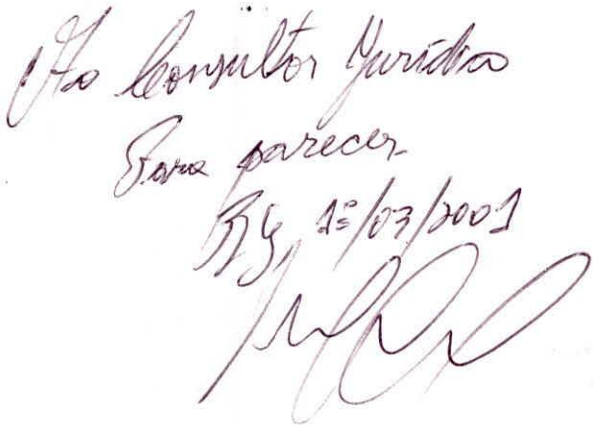 Ao Consultor Jurídico
Para parecer
1º/03/2001